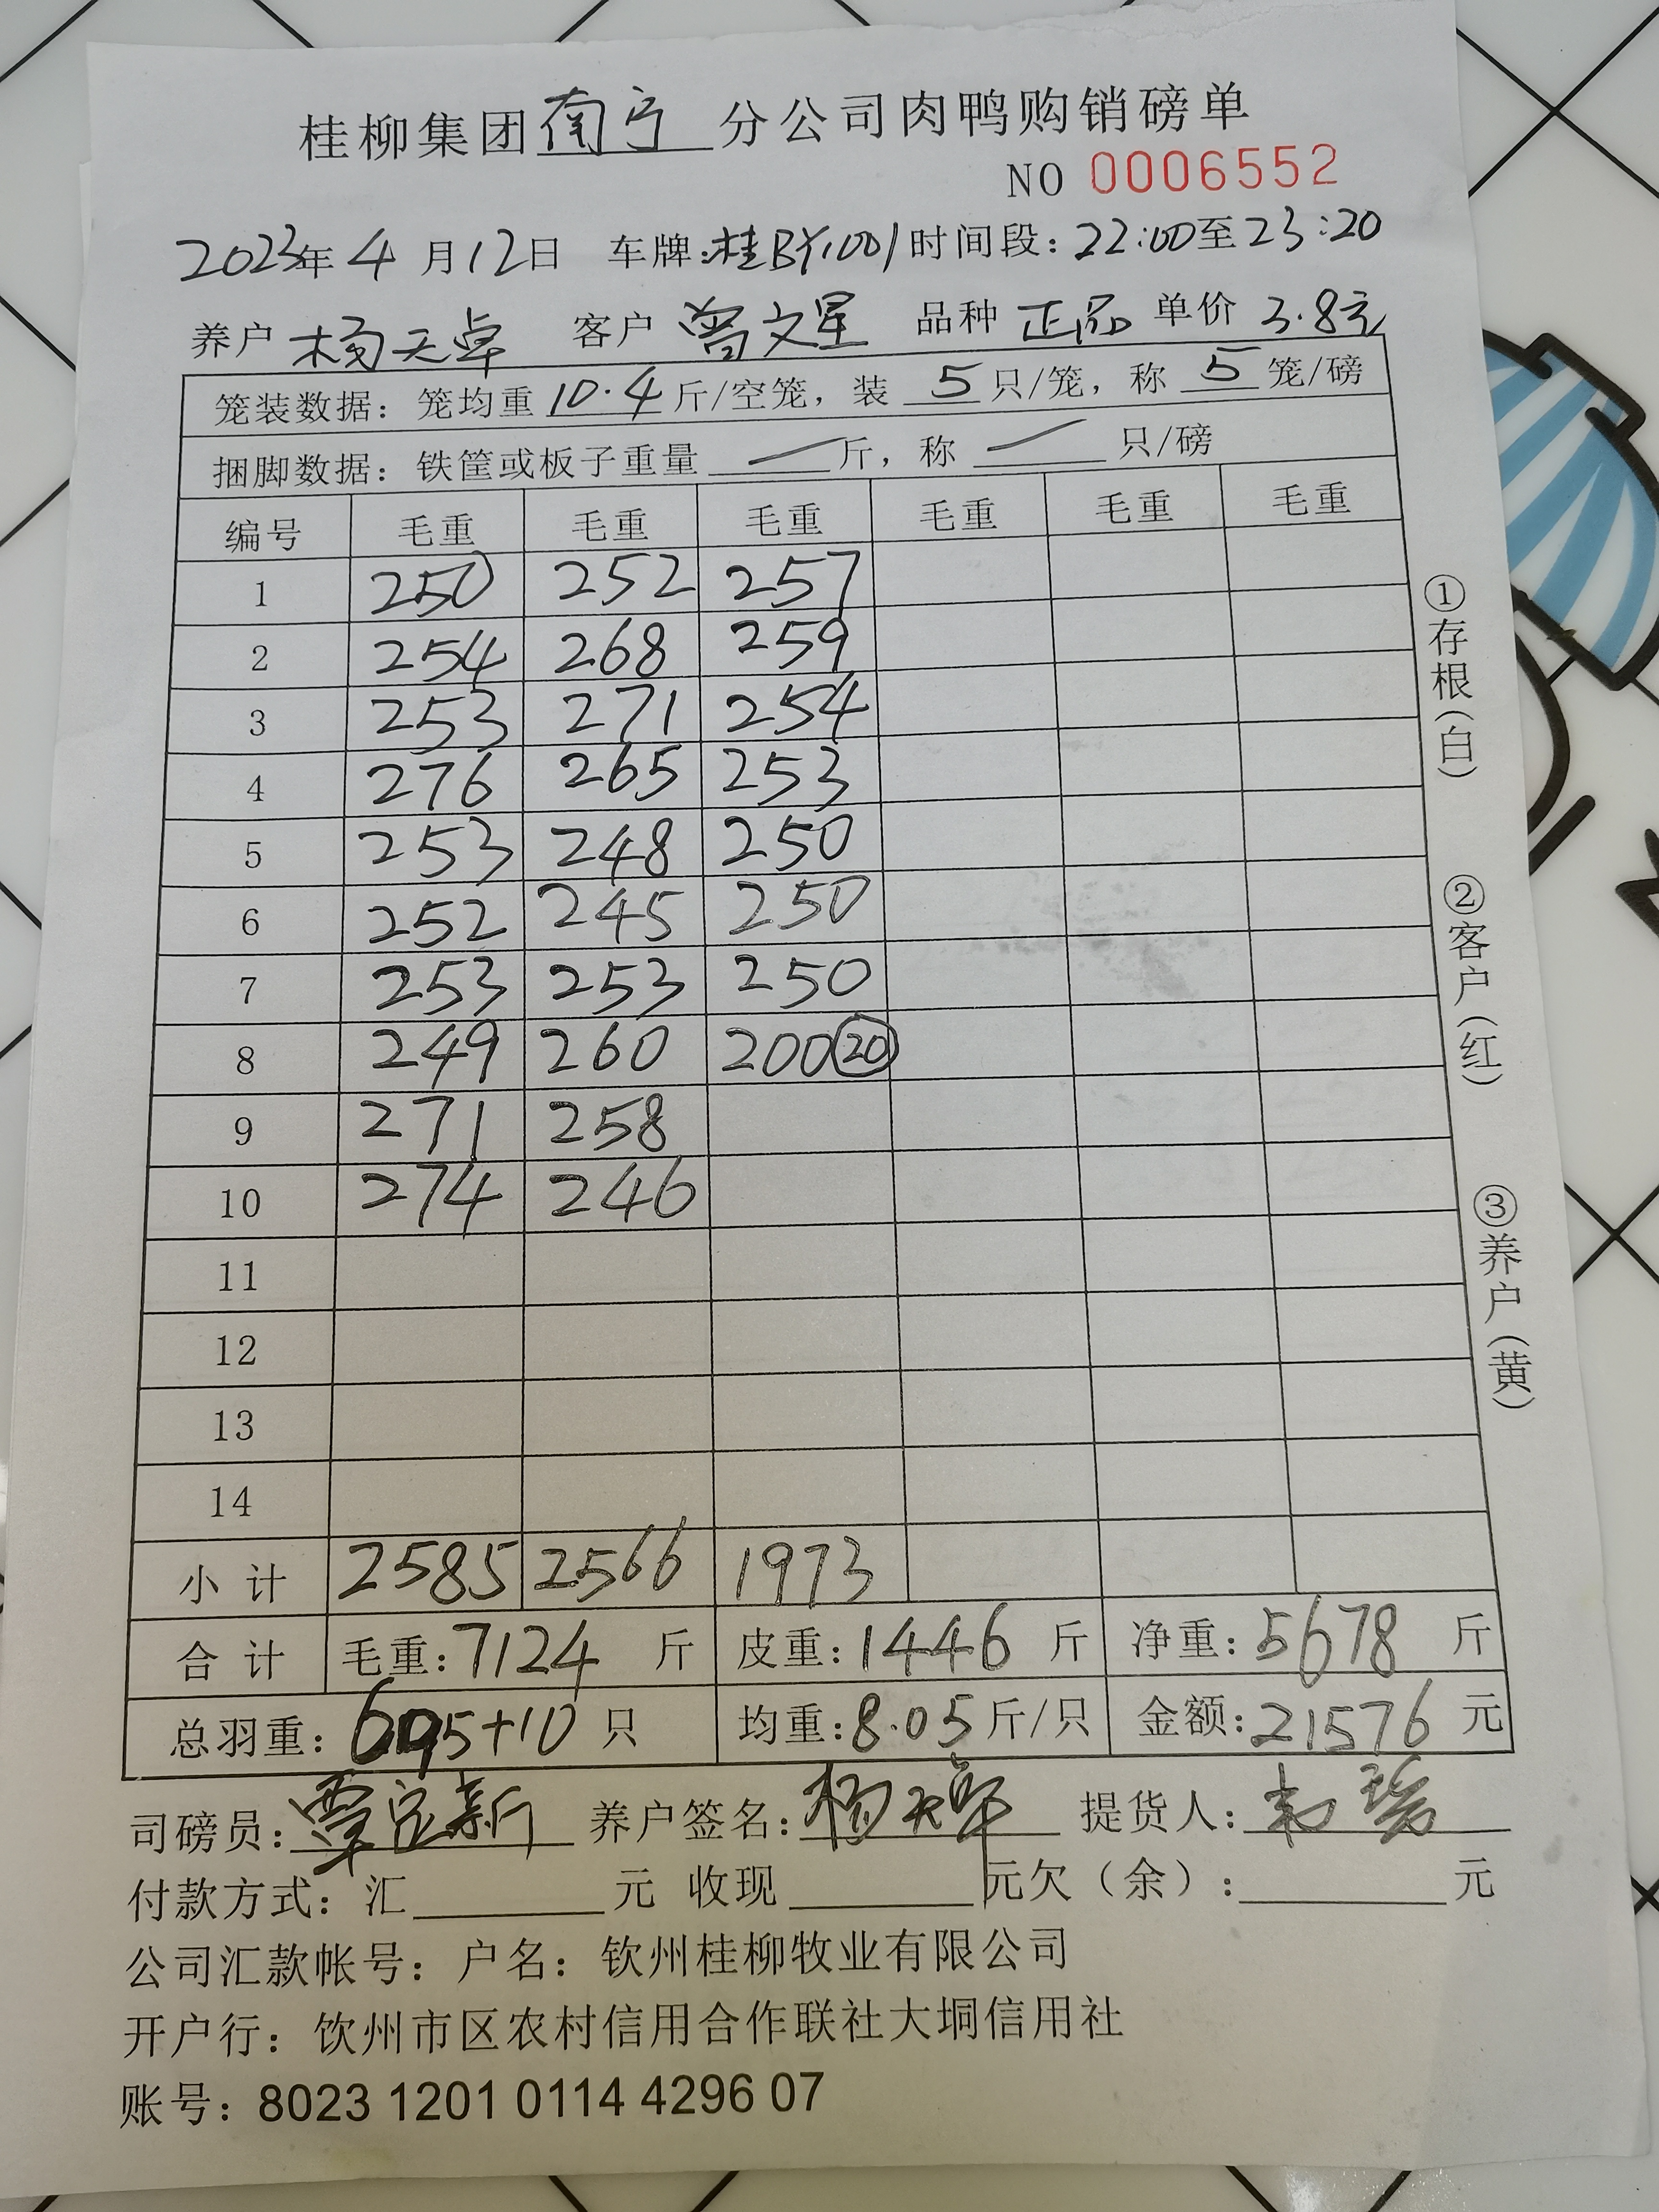 桂柳集团南宁分公司肉鸭购销磅单
NO 0006552
2023年4月12日 车牌:桂BY1001 时间段:22:00至23:20
养户 杨天卓 客户 曾文星 品种 正品 单价 3.8元
笼装数据:笼均重 10.4 斤/空笼,装 5 只/笼,称 5 笼/磅
捆脚数据:铁筐或板子重量 — 斤,称 — 只/磅
编号 毛重 毛重 毛重 毛重 毛重 毛重
1 250 252 257
2 254 268 259
3 253 271 254
4 276 265 253
5 253 248 250
6 252 245 250
7 253 253 250
8 249 260 200 20
9 271 258
10 274 246
11
12
13
14
小计 2585 2566 1973
合计 毛重:7124 斤 皮重:1446 斤 净重:5678 斤
总羽重:695+10 只 均重:8.05 斤/只 金额:21576 元
司磅员: 养户签名:杨天卓 提货人:
付款方式:汇 元 收现 元欠(余): 元
公司汇款帐号:户名:钦州桂柳牧业有限公司
开户行:饮州市区农村信用合作联社大垌信用社
账号:8023 1201 0114 4296 07
①存根(白)
②客户(红)
③养户(黄)